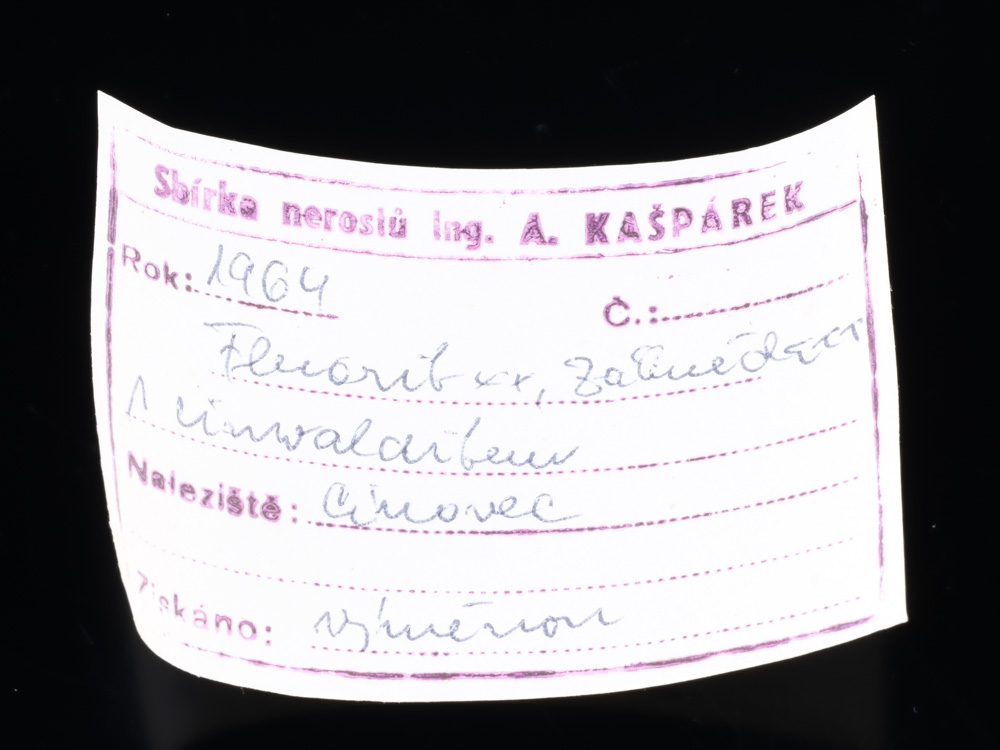 Sbírka nerostů Ing. A. KAŠPÁREK
Rok: 1964 Č.:
Fluorit xx, záhněda xx
s cinvalditem
Naleziště: Cínovec
Získáno: výměnou